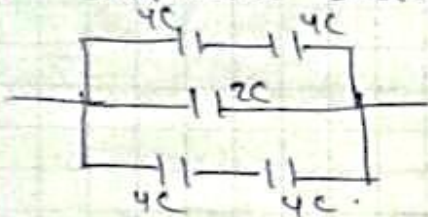 4C 4C
2C
4C 4C.